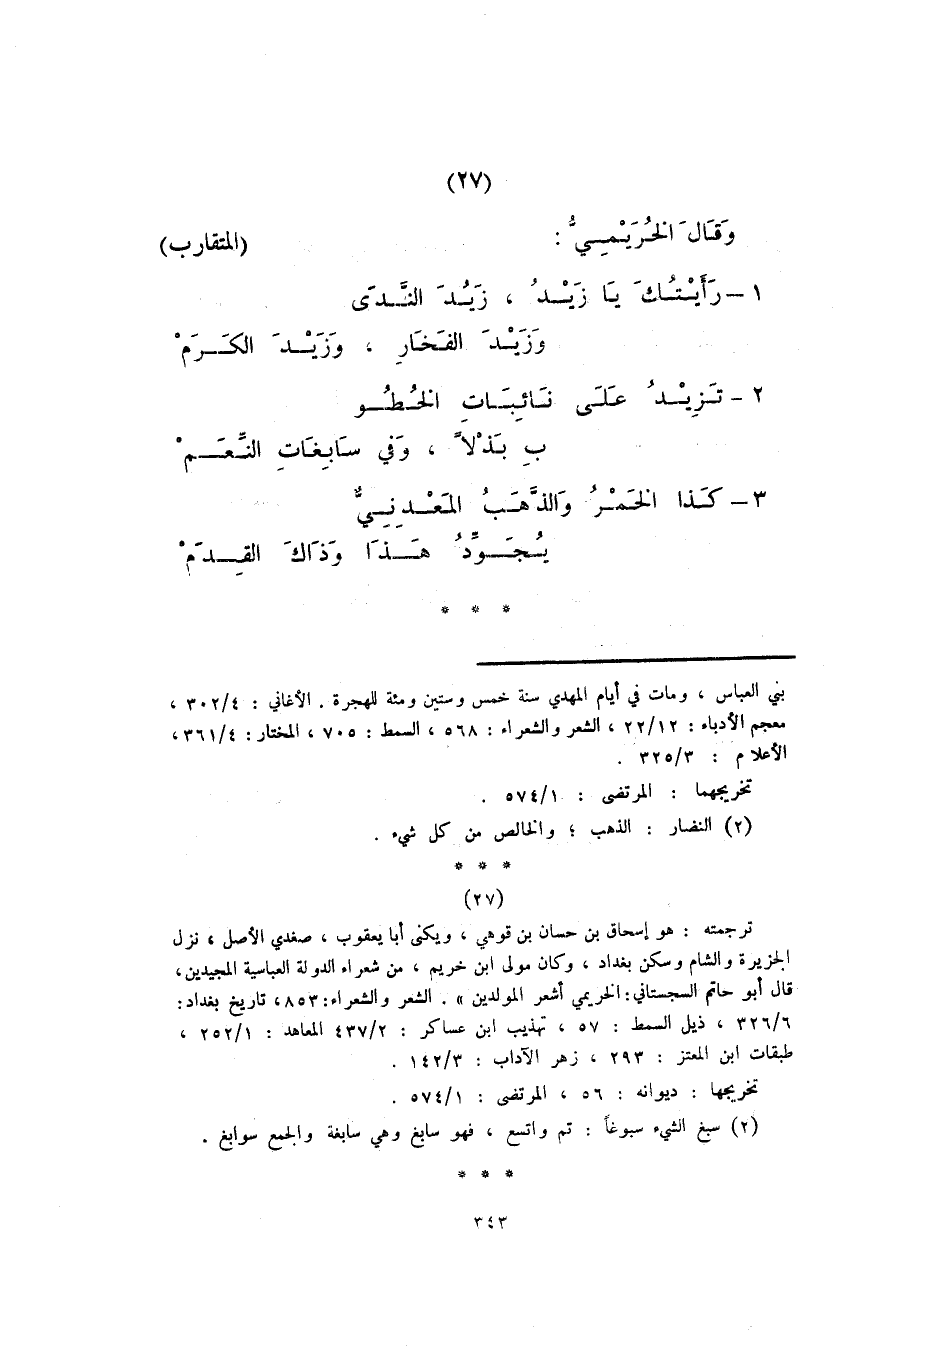 (٢٧)
وَقَالَ الخُرَيْمِيُّ :
(المتقارب)
١ – رَأَيْتُكَ يَا زَيْدُ ، زَيْدَ النَّدَى
وَزَيْدَ الفَخَارِ ، وَزَيْدَ الكَرَمْ
٢ – تَزِيْدُ عَلَى نَائِبَاتِ الخُطُو
بِ بَذْلاً ، وَفي سَابِغَاتِ النِّعَمْ
٣ – كَذا الخَمْرُ وَالذَّهَبُ المَعْدِنِيُّ
يُجَوِّدُ هَذَا وَذَاكَ القِدَمْ
* * *
بني العباس ، ومات في أيام المهدي سنة خمس وستين ومئة للهجرة . الأغاني : ٣٠٢/٤ ،
معجم الأدباء : ٢٢/١٢ ، الشعر والشعراء : ٥٦٨ ، السمط : ٧٠٥ ، المختار : ٣٦١/٤ ،
الأعلام : ٣٢٥/٣ .
تخريجهما : المرتضى : ٥٧٤/١ .
(٢) النضار : الذهب ؛ والخالص من كل شيء .
* * *
(٢٧)
ترجمته : هو إسحاق بن حسان بن قوهي ، ويكنى أبا يعقوب ، صغدي الأصل ، نزل
الجزيرة والشام وسكن بغداد ، وكان مولى ابن خريم ، من شعراء الدولة العباسية المجيدين ،
قال أبو حاتم السجستاني : الخريمي أشعر المولدين » . الشعر والشعراء : ٨٥٣ ، تاريخ بغداد :
٣٢٦/٦ ، ذيل السمط : ٥٧ ، تهذيب ابن عساكر : ٤٣٧/٢ المعاهد : ٢٥٢/١ ،
طبقات ابن المعتز : ٢٩٣ ، زهر الآداب : ١٤٢/٣ .
تخريجها : ديوانه : ٥٦ ، المرتضى : ٥٧٤/١ .
(٢) سبغ الشيء سبوغاً : تم واتسع ، فهو سابغ وهي سابغة والجمع سوابغ .
* * *
٣٤٣